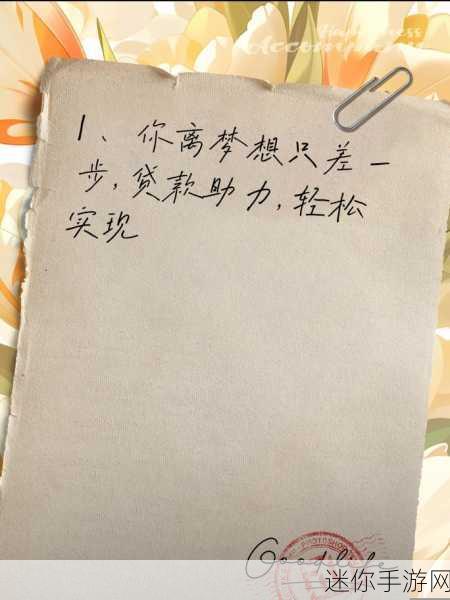 Happiness
Accompany
1、你离梦想只差一
步,贷款助力,轻松
实现
Good life
迷你手游网